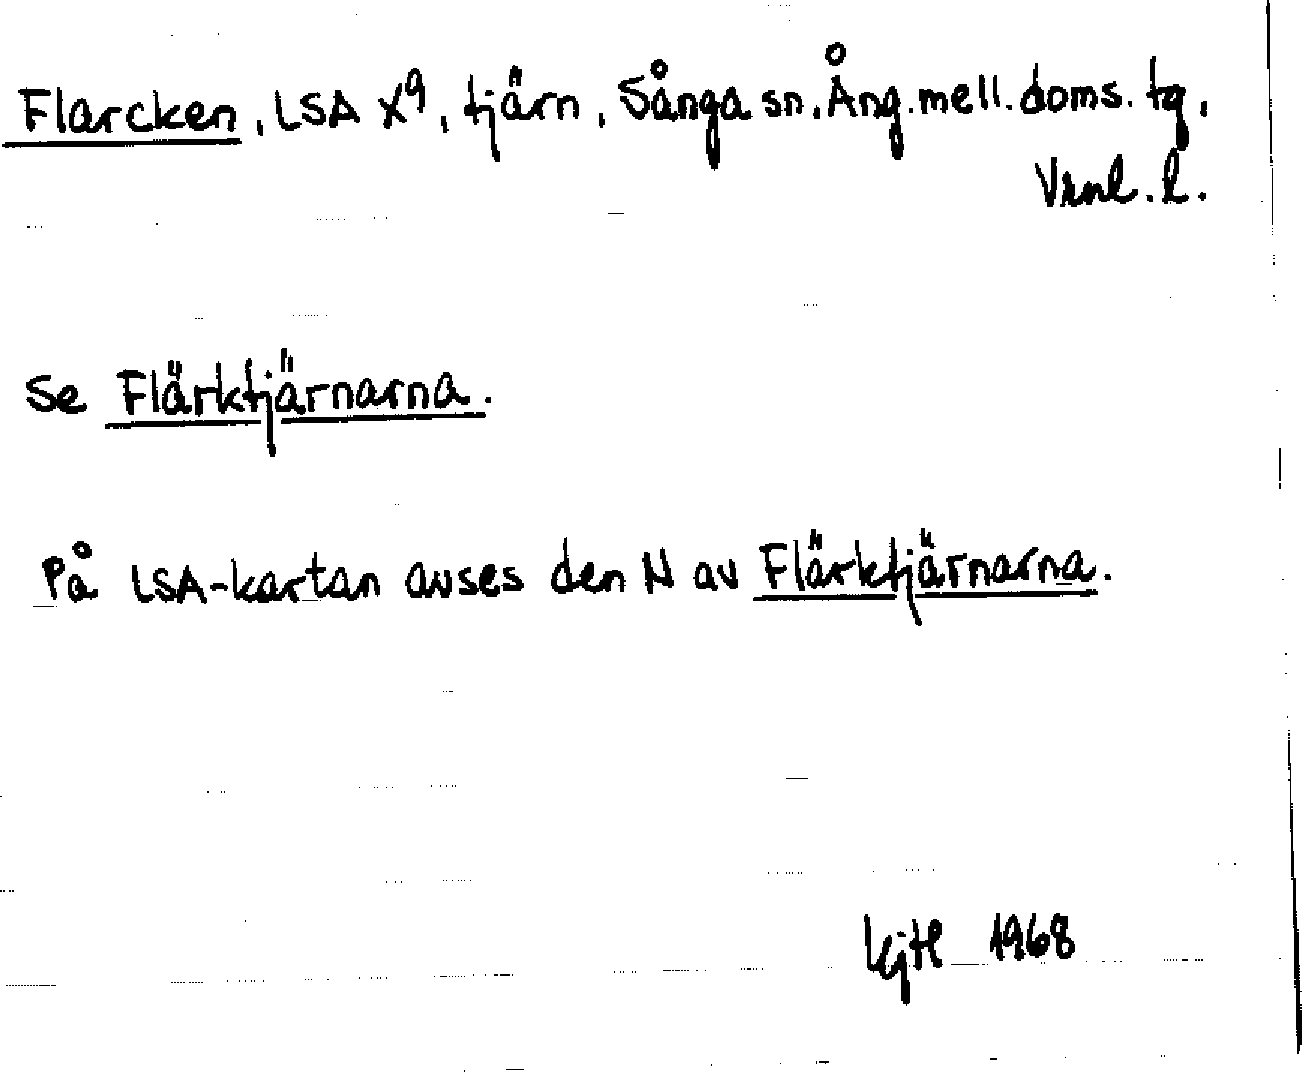 Flarcken, LSA X9, tjärn, Sånga sn. Ång. mell. doms. tg.
Vrnl. l.
Se Flärktjärnarna.
På LSA-kartan avses den N av Flärktjärnarna.
1968